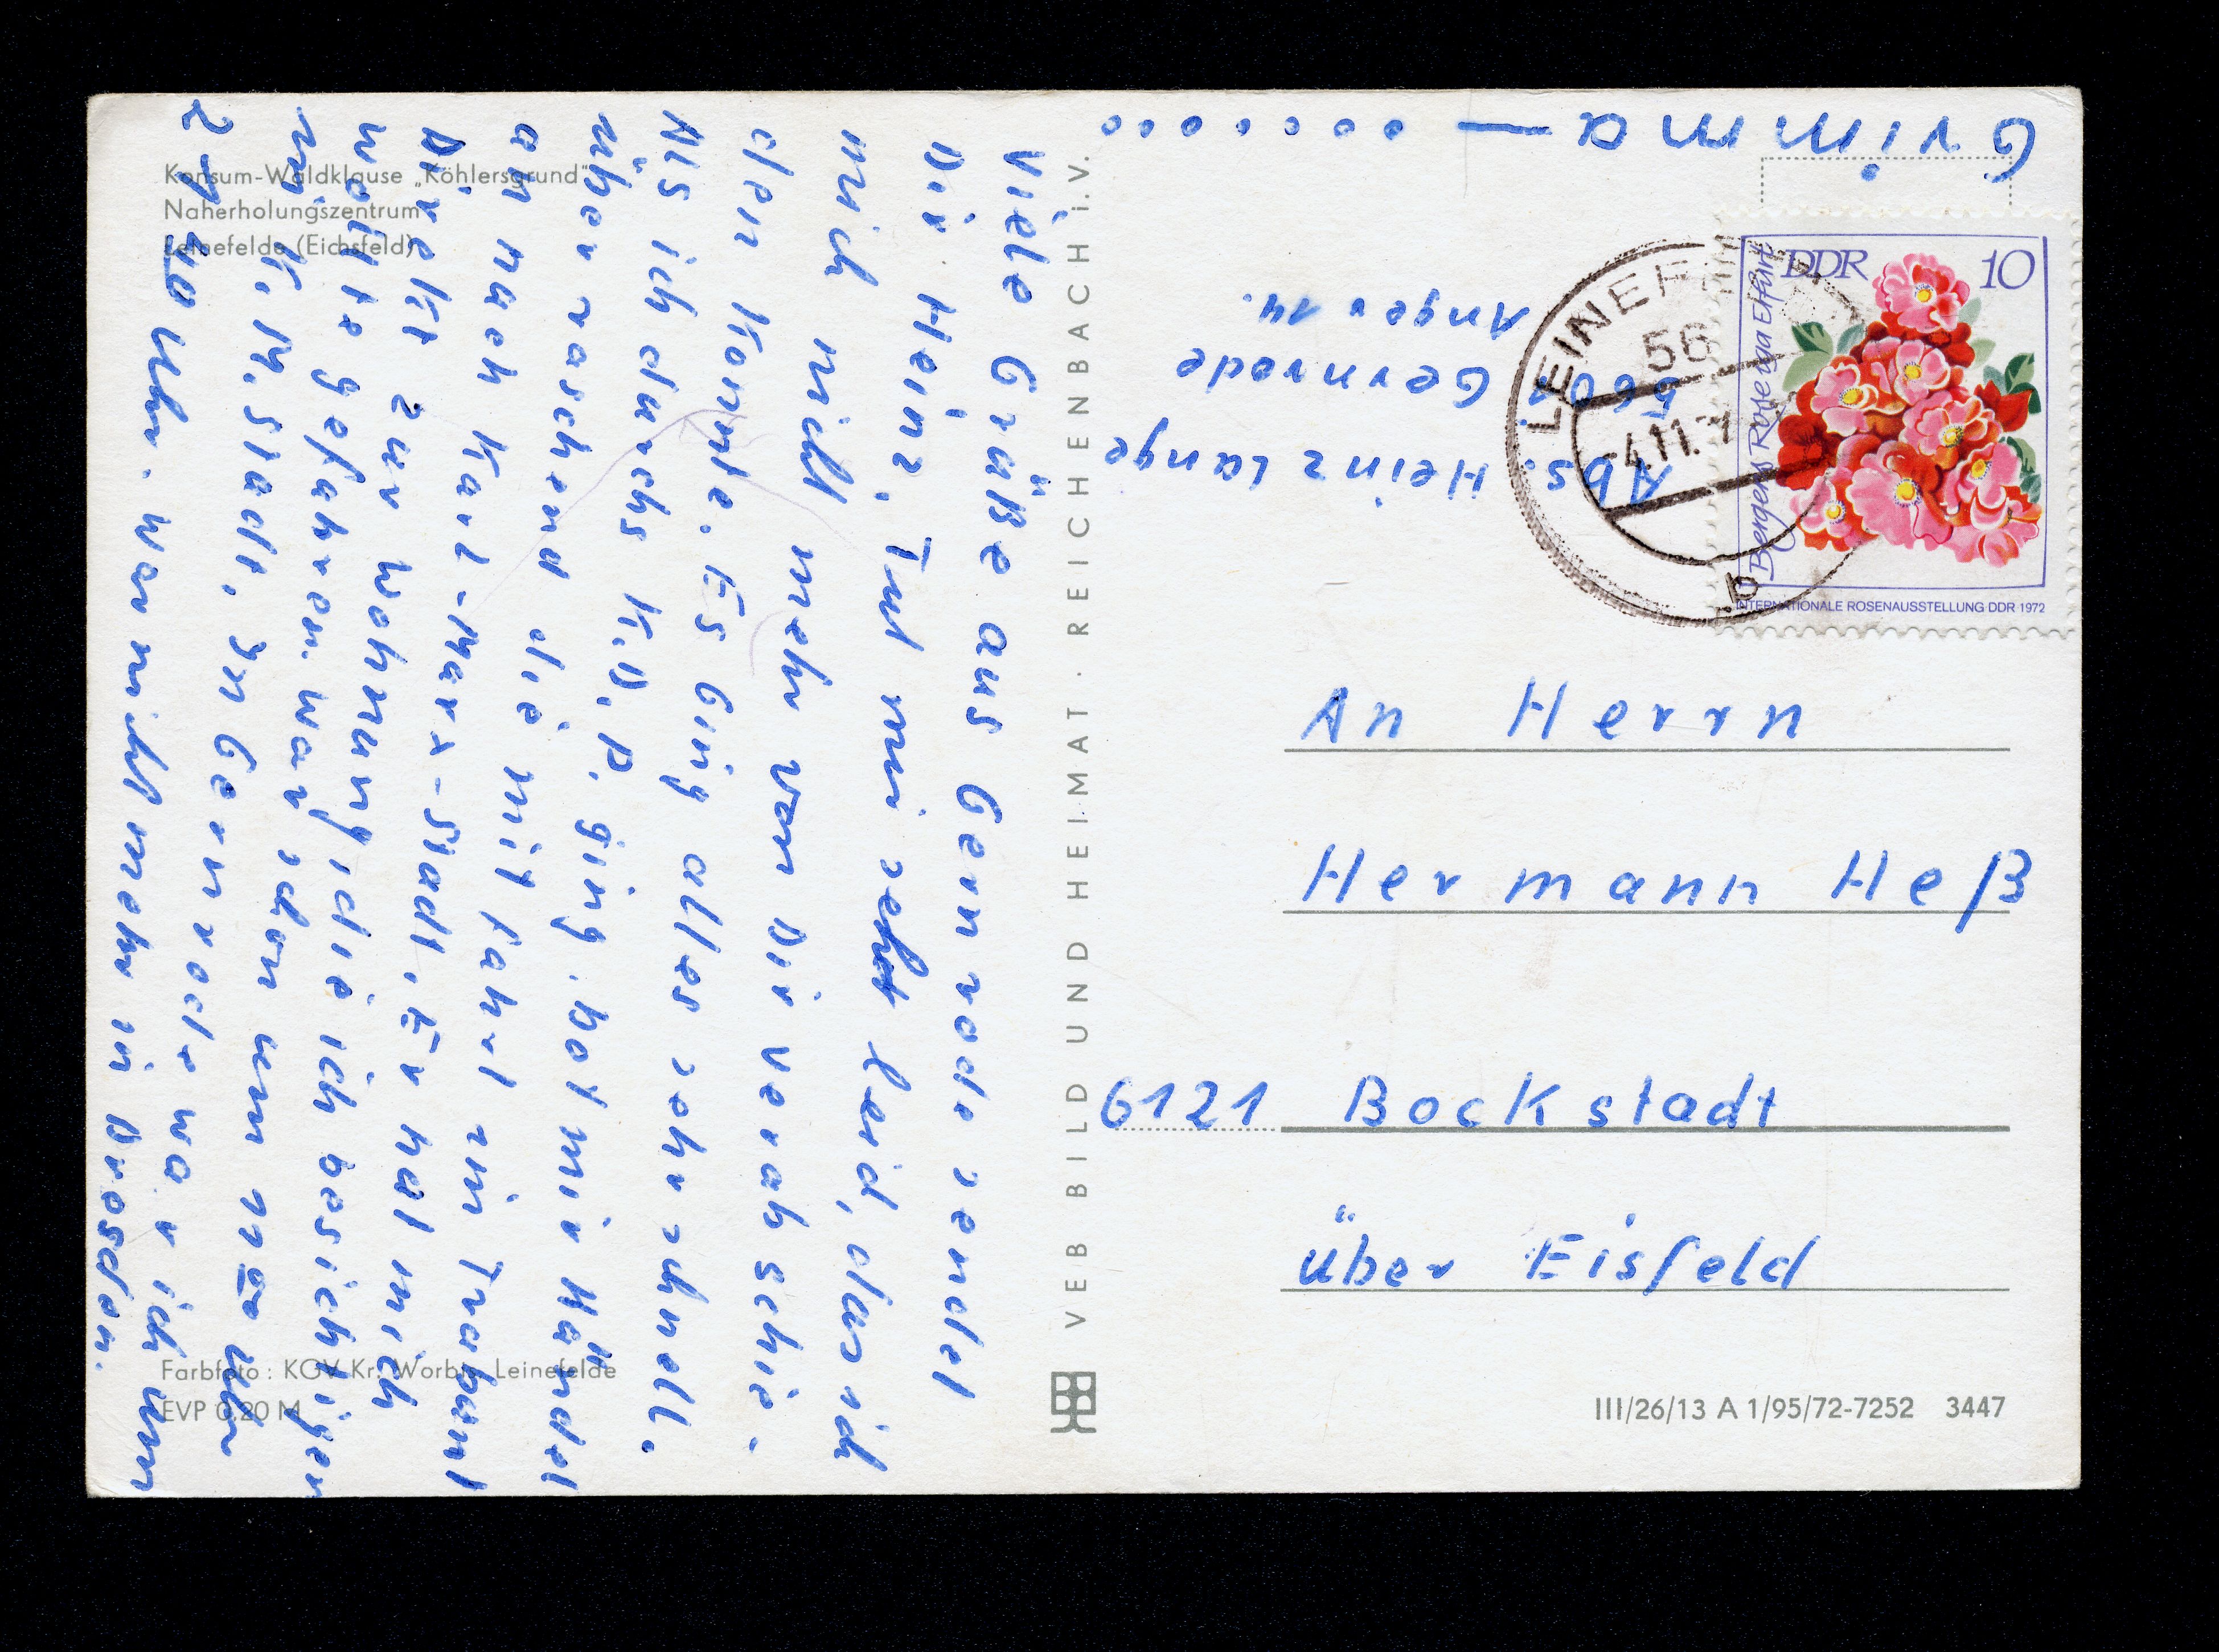 Konsum-Waldklause „Köhlersgrund"
Naherholungszentrum
Leinefelde (Eichsfeld)
Viele Grüße aus Gernrode sendet
Dir Heinz. Tut mir sehr leid, das ich
mich nicht mehr von Dir verabschie-
den konnte. Es ging alles sehr schnell.
Als ich durchs K.D.P. ging, bot mir Händel
überraschend die Mitfahrt im Trabant
an nach Karl-Marx-Stadt. Er hat mich
Direkt zur Wohnung, die ich besichtigen
wollte gefahren. War schon um Uhr
in K. M. Stadt. In Gernrode war ich um
21 40 Uhr. War nicht mehr in Dresden.
Farbfoto: KGV Kr. Worbis, Leinefelde
EVP 0,20 M
VEB BILD UND HEIMAT · REICHENBACH i. V.
Grimma
Abs. Heinz Lange
5601 Gernrode
Anger 14.
LEINEFELDE
56
-4.11.7
b
DDR 10
Bergers Rose iga Erfurt
INTERNATIONALE ROSENAUSSTELLUNG DDR 1972
An Herrn
Hermann Heß
6121 Bockstadt
über Eisfeld
III/26/13 A 1/95/72-7252 3447